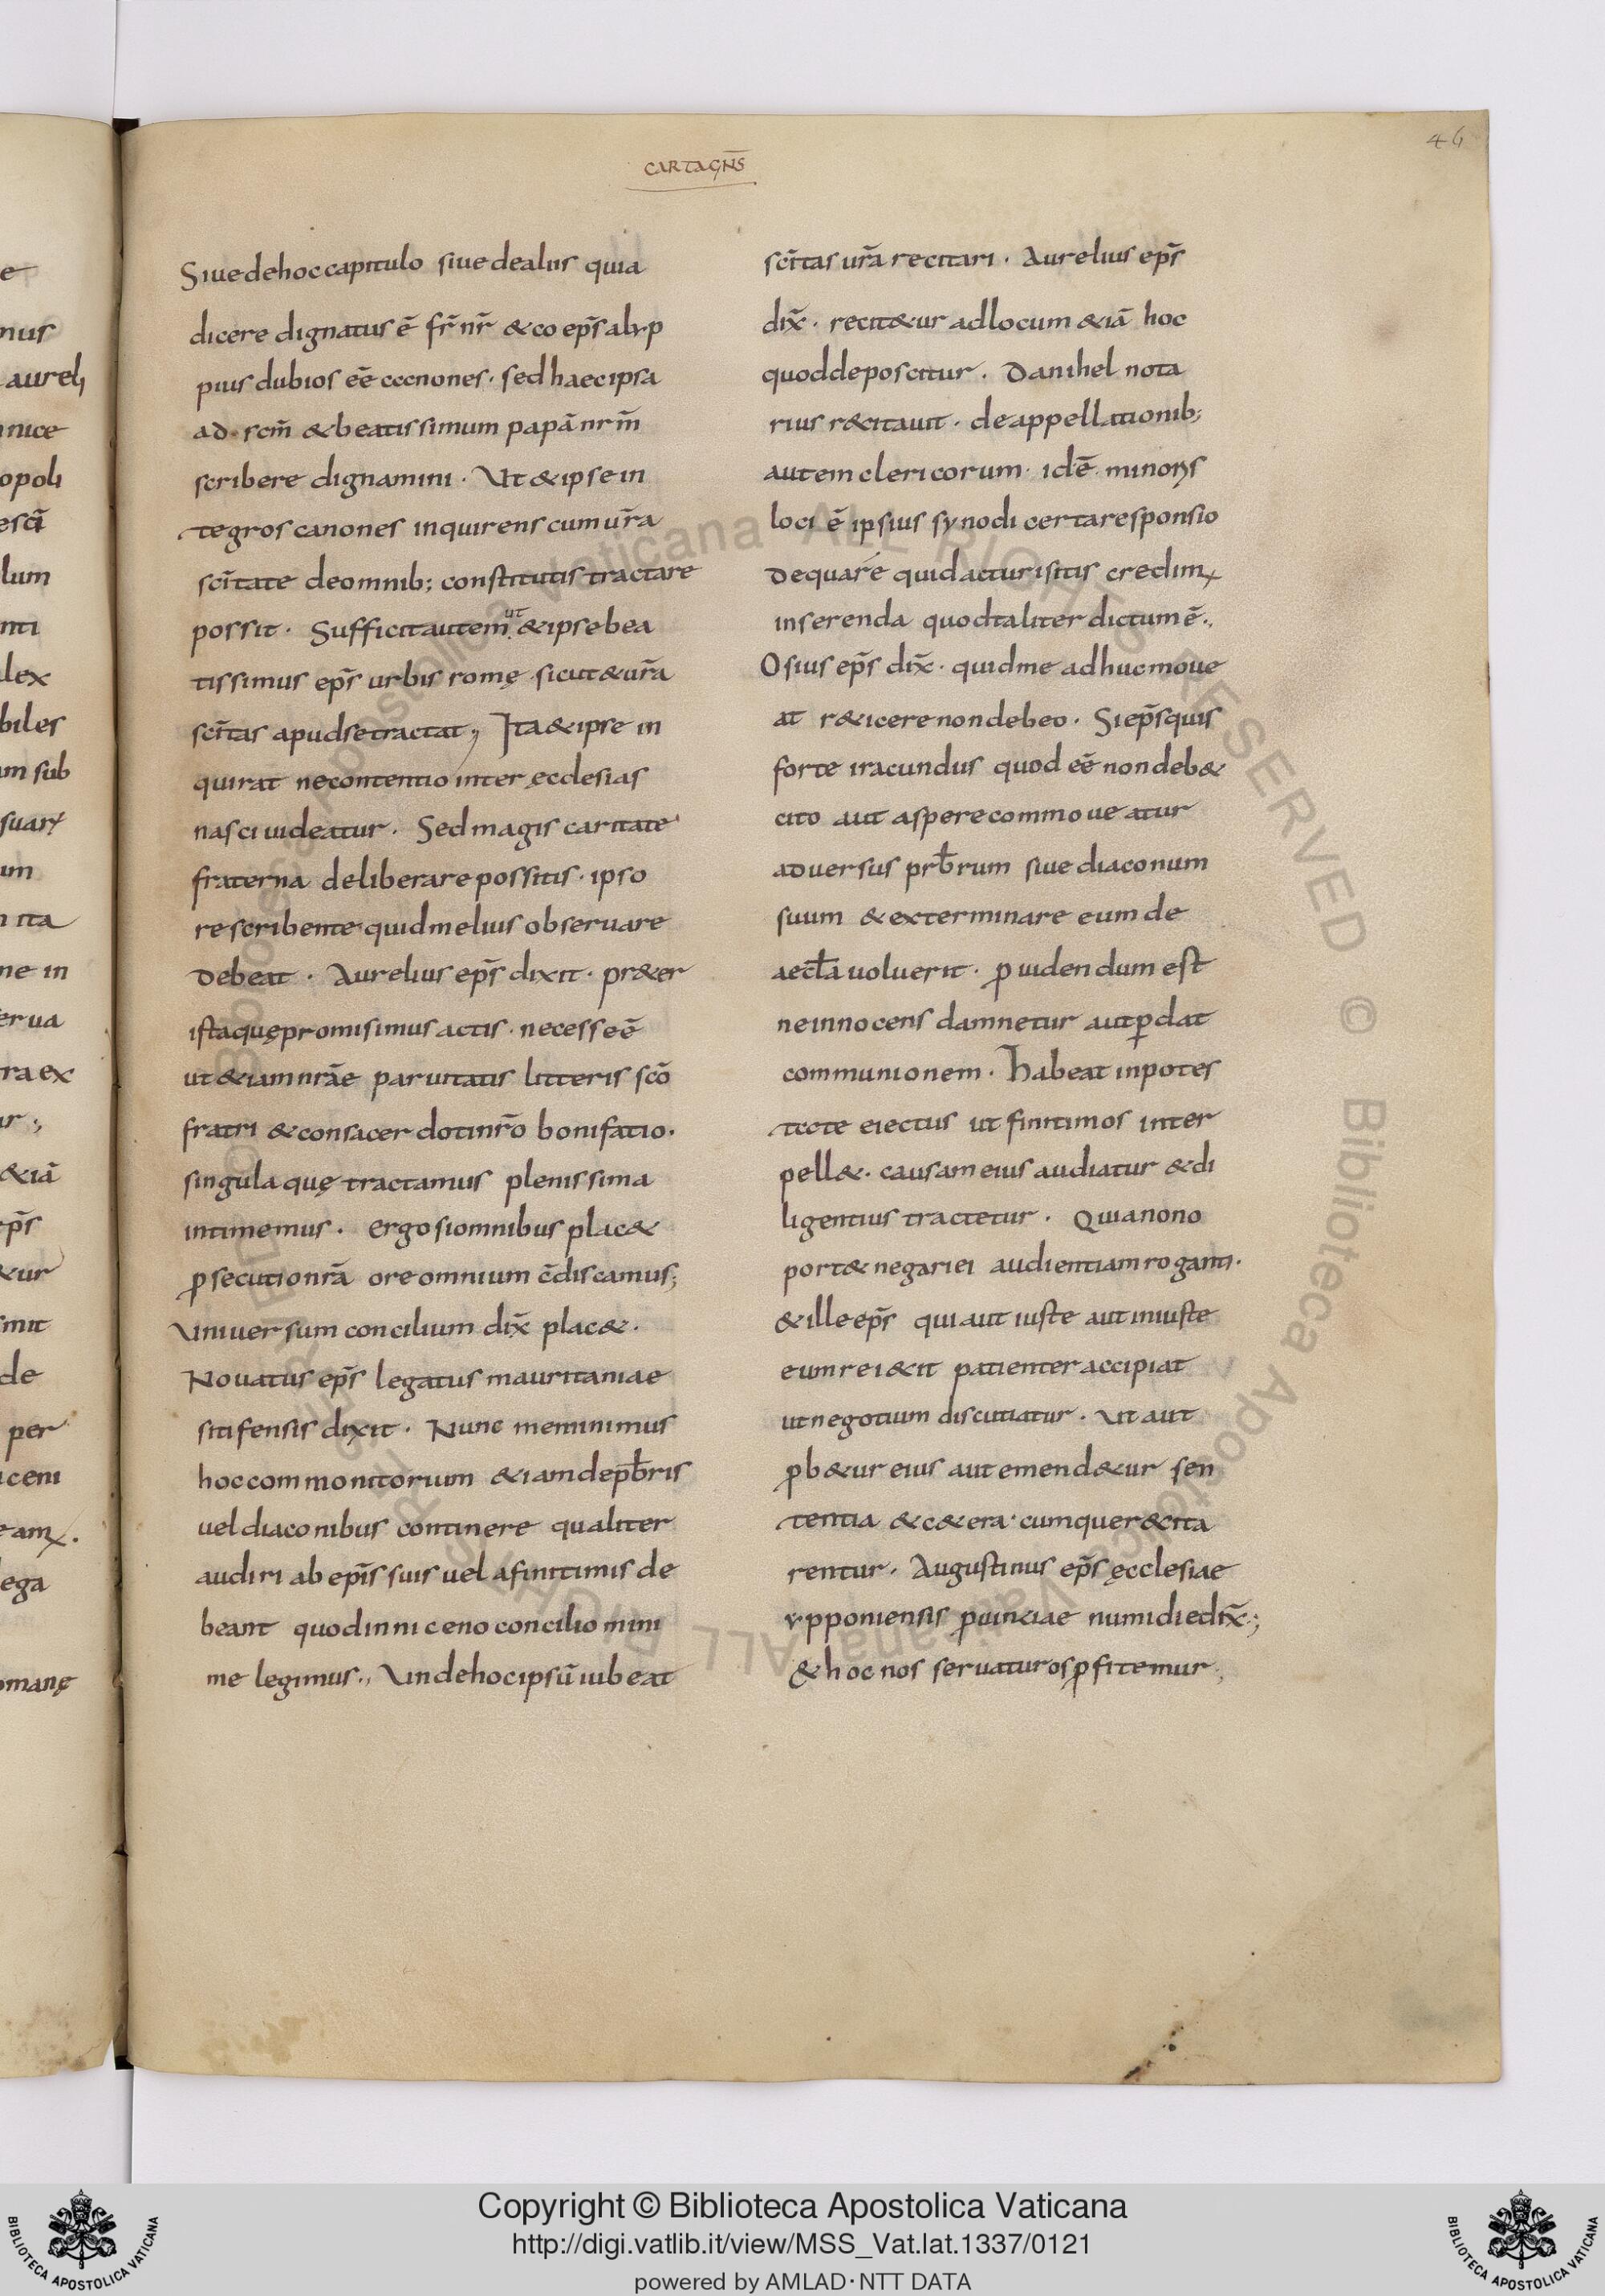 CARTAGÑS
46
Siue de hoc capitulo siue de aliis quia
dicere dignatus ē fr̄ nr̄ & co ep̄s alyp
pius dubios eē ccnones · sed haec ipsa
ad · scm̄ & beatissimum papā nrm̄
scribere dignamini · Ut & ipse in
tegros canones inquirens cum ur̄a
sci̅tate de omnib; constitutis tractare
possit · Sufficit autem ut & ipse bea
tissimus ep̄s urbis romę · sicut & ur̄a
sci̅tas apud se tractat; Ita & ipse in
quirat ne contentio inter ęcclesias
nasci uideatur · Sed magis caritate
fraterna deliberare possitis · ipso
rescribente quid melius obseruare
debeat · Aurelius ep̄s dixit · pr&er
ista quę promisimus actis · necesse ē
ut &iam nrāe paruitatis litteris scō
fratri & consacerdoti nr̄o bonifatio ·
singula quę tractamus plenissima
intimemus · ergo si omnibus plac&
ꝓsecutio nrā ore omnium c̄discamus;
Uniuersum concilium dix̄ plac& ·
Nouatus ep̄s legatus mauritaniae
sitifensis dixit · Nunc meminimus
hoc commonitorium &iam de pb̄ris
uel diaconibus continere qualiter
audiri ab ep̄is suis uel a finitimis de
beant quod in niceno concilio mini
me legimus ·, Unde hoc ipsū iubeat
sci̅tas ur̄a recitari · Aurelius ep̄s
dix̄ · recit&ur ad locum &iā hoc
quod deposcitur · Danihel nota
rius r&citauit · de appellationib;
autem clericorum · id ē minorꝝ
loci ē ipsius synodi certa responsio
de qua ré quid acturi sitis credimꝰ
inserenda quod taliter dictum ē ·,
Osius ep̄s dix̄ · quid me adhuc moue
at r&icere non debeo · Si ep̄s quis
forte iracundus quod eē non deb&
cito aut aspere commoueatur
aduersus prb̄rum siue diaconum
suum & exterminare eum de
aecl̄a uoluerit · ꝓuidendum est
ne innocens damnetur aut ꝑdat
communionem · Habeat in potes
tcte eiectus ut finitimos inter
pell& · causam eius audiatur & di
ligentius tractetur · Quia non o
port& negari ei audientiam roganti ·
& ille ep̄s qui aut iuste aut iniuste
eum rei&it patienter accipiat
ut negotium discutiatur · Ut aut
ꝓb&ur eius aut emend&ur sen
tentia & c&era · cumque r&cita
rentur · Augustinus ep̄s ęcclesiae
ypponiensis ꝓuinciae numidie dix̄ ·;
& hoc nos seruaturos ꝓfitemur;
Copyright © Biblioteca Apostolica Vaticana
http://digi.vatlib.it/view/MSS_Vat.lat.1337/0121
powered by AMLAD·NTT DATA
BIBLIOTECA APOSTOLICA VATICANA
BIBLIOTECA APOSTOLICA VATICANA